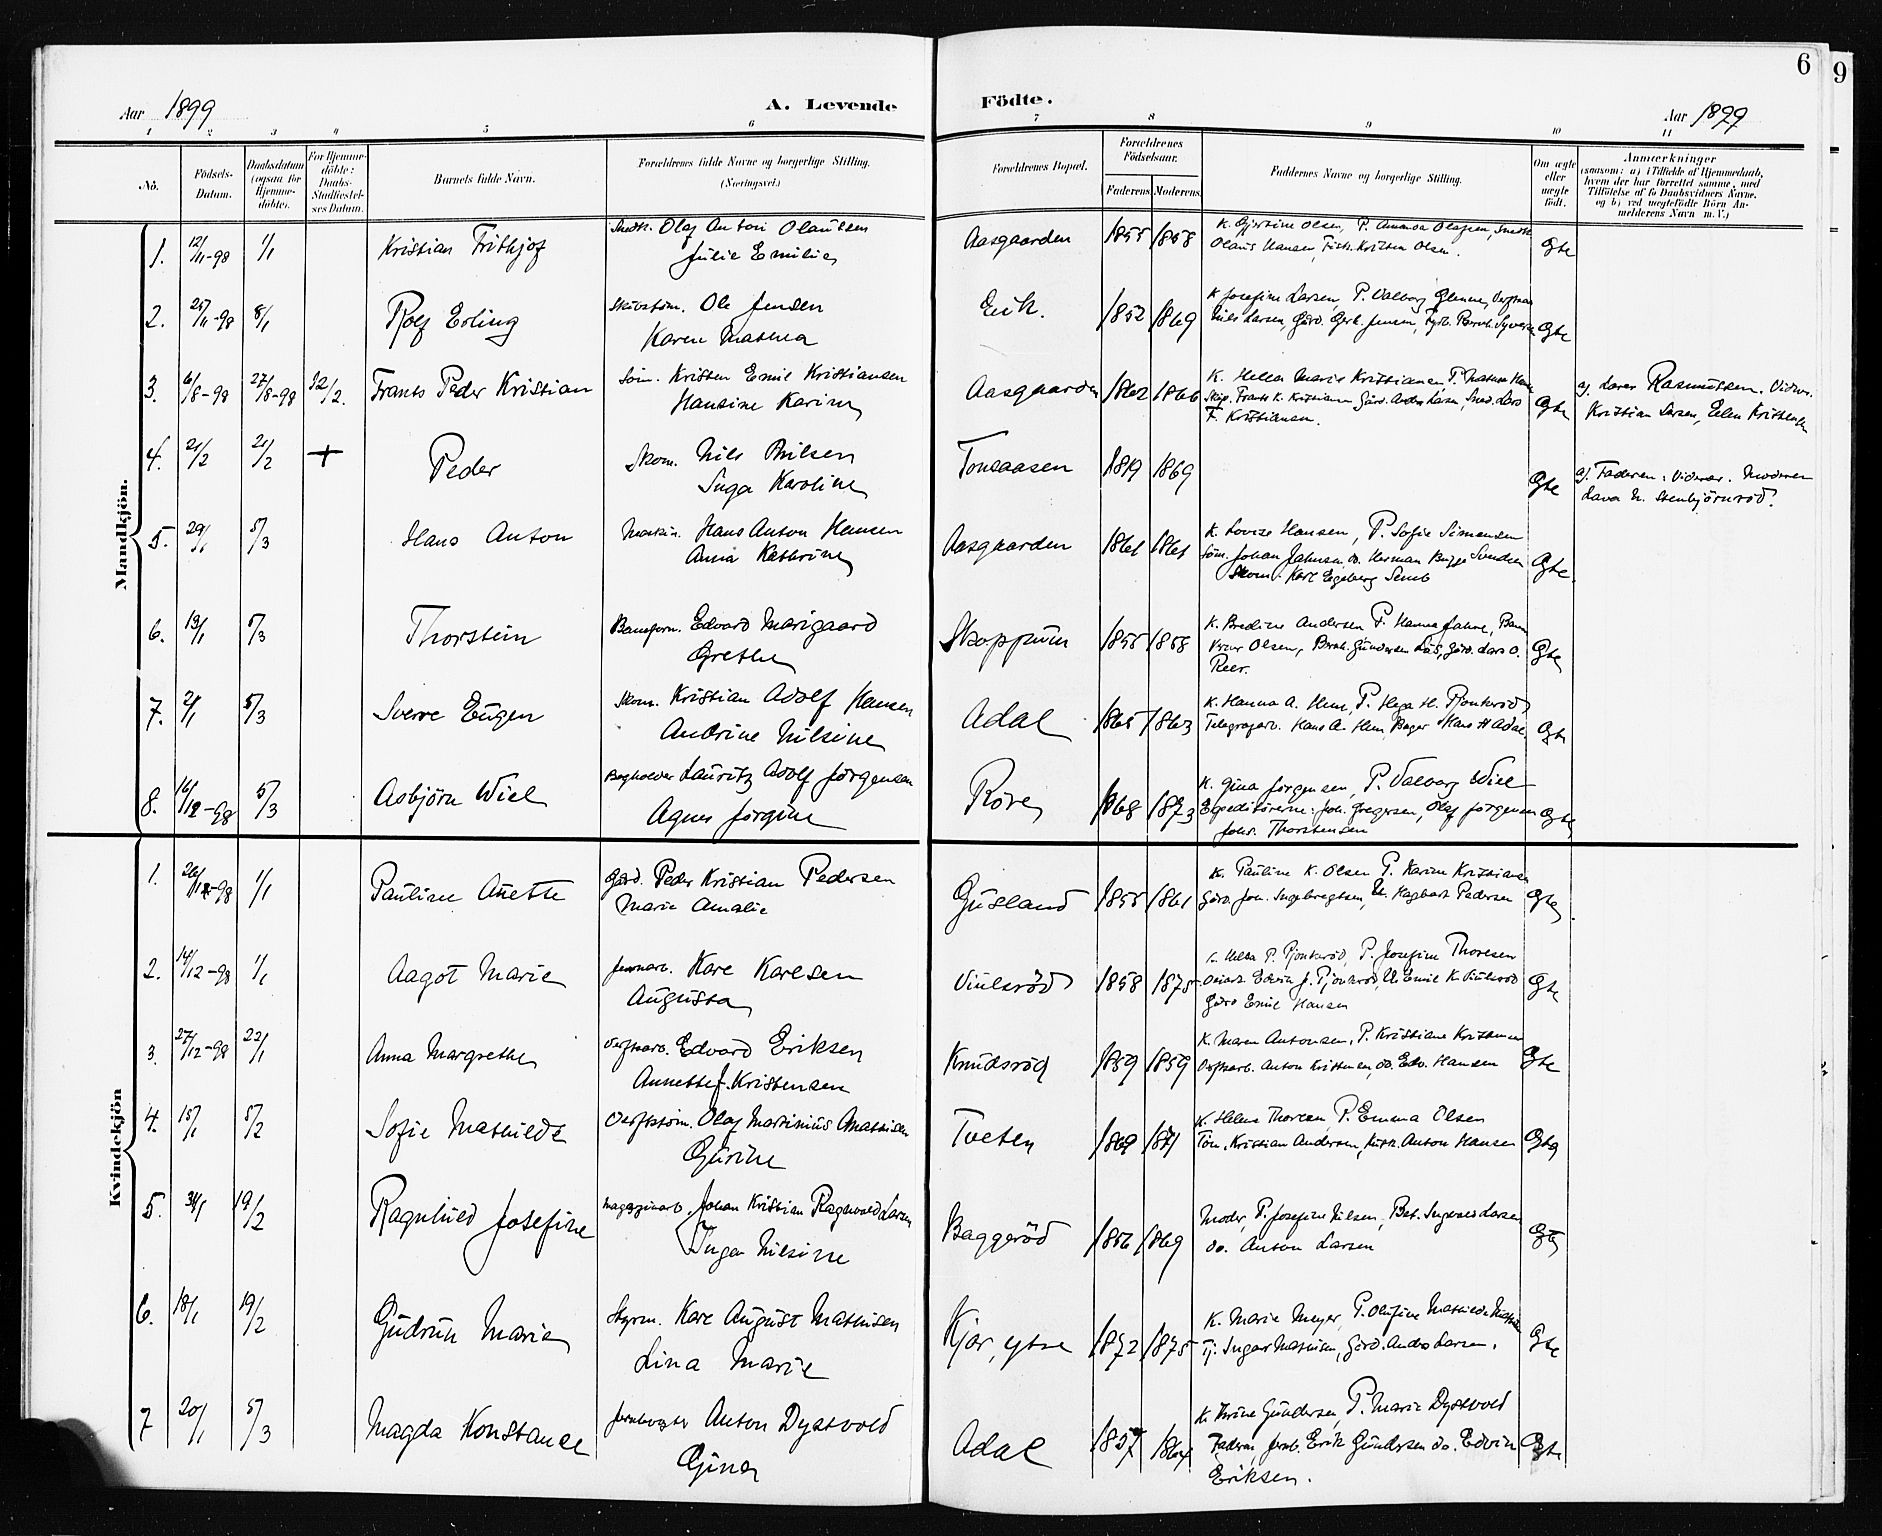 6
9
Aar 1899
A. Levende
Födte.
Aar 1899
1 2 3 4 5 6 7 8 9 10 11
No.
Födsels-Datum.
Daabsdatum (ogsaa for Hjemme-döbte).
For Hjemme-döbte: Daabs-Stadfæstel-ses Datum.
Barnets fulde Navn.
Forældrenes fulde Navne og borgerlige Stilling.
(Næringsvei.)
Forældrenes Bopæl.
Forældrenes Födselsaar.
Faderens.
Moderens.
Faddernes Navne og borgerlige Stilling.
Om ægte eller uægte födt.
Anmærkninger
(saasom: a) i Tilfælde af Hjemmedaab, hvem der har forrettet samme, med Tilföielse af to Daabsvidners Navne, og b) ved uægtefödte Börn An-melderens Navn m. V.)
Mandkjön.
1. 12/11-98 1/1 Kristian Frithjof Olaf Anton Olaussen Aasgaarden 1855 1858 K. Gjertine Olsen, P. Amanda Olafsen, Ægte
Julie Emilie Olaus Hansen, Kristen Olsen.
2. 25/11-98 8/1 Rolf Erling Skibstöm. Ole Jensen Eik. 1852 1869 K. Josefine Larsen, P. Valborg
Karen Mathea Nils Larsen, Gård. Gerh. Jensen, Ægte
3. 6/8-98 27/8-98 12/2. Frants Peder Kristian Söm. Kristen Emil Kristiansen Aasgaarden 1862 1866 K. Helea Marie Kristiansen, P. Ægte a) Lærer Rasmussen. Vidner.
Hansine Karine Skip. Frants K. Kristiansen Kristian Larsen, Elen Kristensen
F. Kristiansen.
4. 21/2 21/2 + Peder Skom. Nils Nilsen Tonsaasen 1869 Ægte a) Faderen. Vidner. Moderen
Inga Karoline Lava N. Stenbjörnröd.
5. 29/1 5/3 Hans Anton Maskin. Hans Anton Hansen Aasgaarden 1861 1861 K. Lovise Hansen, P. Sofie Simensen Ægte
Anna Kathrine Söm. Johan Jahnsen, do. Herman Bugge Svendsen
Skom. Karl Egeberg Semb
6. 13/1 5/3 Thorstein Baneform. Edvard Marigaard Skoppum 1855 1858 K. Bredine Andersen P. Hanna Jahre, Ægte
Grethe Olsen, Bernh. Gundersen Gård. Lars O.
Reer.
7. 2/1 5/3 Sverre Eugen Skom. Kristian Adolf Hansen Adal 1865 1863 K. Hanna A. Hem, P. Helga H. Pjonkeröd Ægte
Andrine Nilsine Telegrafarb. Hans A. Hem, Bager Hans H Adal
8. 16/12-98 5/3 Asbjörn Wiel Bogholder Lauritz Adolf Jørgensen Röre 1868 1873 K. Gina Jørgensen, P. Valborg Wiel Ægte
Agnes Jørgine Expeditörerne: Joh. Gregersen, Olaf Jørgensen
Johs. Thorstensen
Kvindekjön
1. 26/12-98 1/1 Pauline Anette Gård. Peder Kristian Pedersen Gusland 1855 1861 K. Pauline K. Olsen P. Karine Kristiansen Ægte
Marie Amalie Gård. Joh. Ingebregtsen, U. Hagbart Pedersen
2. 14/12-98 1/1 Aagot Marie Jernarb. Karl Karlsen Viulsröd 1858 1875 K. Helea P. Pjonkeröd, P. Josefine Thoresen Ægte
Augusta Edvin J. Pjonkeröd, U. Emil K. Viulsröd
Gård Emil Hansen
3. 27/12-98 22/1 Anna Margrethe Verftsarb. Edvard Eriksen Knudsröd 1859 1859 K. Maren Antonsen, P. Kristiane Kristensen Ægte
Annette J. Kristensen Verftsarb. Anton Kristensen, do. Edv. Hansen
4. 15/1 5/2 Sofie Mathilde Verftstöm. Olaf Martinius Mathisen Tveten 1869 1871 K. Helene Thoresen, P. Emma Olsen Ægte
Gurine Töm. Kristian Andersen, Anton Hansen
5. 31/1 19/2 Ragnhild Josefine Magazinarb. Johan Kristian Ragnvald Larsen Baggeröd 1856 1869 Moder, P. Josefine Nilsen, Bet. Ingvald Larsen Ægte
Inga Nilsine do. Anton Larsen
6. 18/1 19/2 Gudrun Marie Styrm. Karl August Mathisen Kjær, ytre 1872 1875 K. Marie Meyer, P. Olufine Mathilde Ægte
Lina Marie Tj. Ingvar Mathisen, Gård. Anders Larsen.
7 20/1 5/3 Magda Konstance Anton Dystvold Adal 1857 1864 K. Thrine Gundersen, P. Marie Dystvold Ægte
Gina Faderen, Jernb. Erik Gundersen do. Edvin
Eriksen.